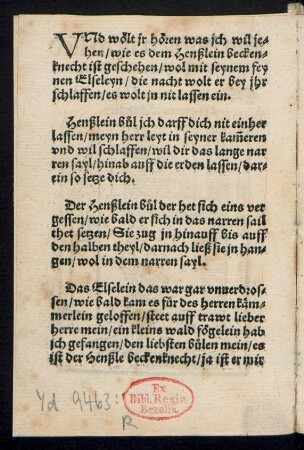 VNd woͤlt jr hoͤren was jch wil je-
hen/wie es dem Henßlein becken-
knecht ist geschehen/wol mit seynem fey
nen Elseleyn/die nacht wolt er bey jhr
schlaffen/es wolt jn nit lassen ein.
Henßlein buͤl jch darff dich nit einher
lassen/meyn herr leyt in seyner kam̃eren
vnd wil schlaffen/wil dir das lange nar
ren sayl/hinab auff die erden lassen/dar-
ein so setze dich.
Der Henßlein buͤl der het sich eins ver
gessen/wie bald er sich in das narren sail
thet setzen/Sie zug jn hinauff bis auff
den halben theyl/darnach ließ sie jn han-
gen/wol in dem narren sayl.
Das Elselein das war gar vnuerdros-
sen/wie bald kam es fuͤr des herren kaͤm-
merlein geloffen/steet auff trawt lieber
herre mein/ein kleins wald foͤgelein hab
jch gefangen/den liebsten buͤlen mein/es
ist der Henßle beckenknecht/ja ist er mir
Yd 9463:
R
Ex
Bibl. Regia
Berolin.